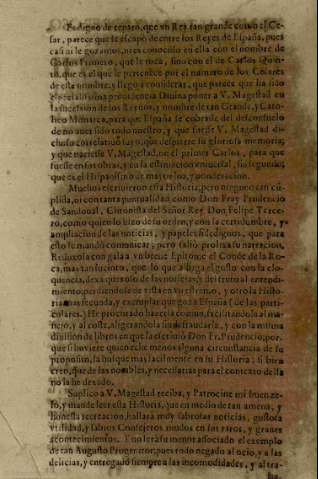 Es digno de reparo, que vn Rey tan grande como el Ce-
sar, parece que se escapó de entre los Reyes de España, pues
casi no le gozamos, ni es conocido en ella con el nombre de
Carlos Primero, que le toca, sino con el de Carlos Quin-
to, que es el que le pertenece por el numero de los Cesares
de este nombre; y llego à considerar, que parece que ha sido
especialissima prouidencia Diuina poner a V. Magestad en
la sucession de los Reynos, y nombre de tan Grande, y Cato-
lico Monarca, para que España se cobrasse del desconsuelo
de no auer sido todo nuestro, y que fuesse V. Magestad di-
choso correlatiuo suyo, que despierte su gloriosa memoria;
y que naciesse V. Magestad, no el primer Carlos, para que
fuesse en sus obras, y en la estimacion vniuersal, sin segundo;
que es el Hispanismo de mayor loa, y ponderacion.
Muchos escriuieron esta Historia, pero ninguno tan cū-
plida, ni con tanta puntualidad como Don Fray Prudencio
de Sandoual, Coronista del Señor Rey Don Felipe Terce-
ro, como quien lo hizo de su orden, y con la certidumbre, y
ampliacion de las noticias, y papeles fidedignos, que para
esto se mandó comunicar; pero salió prolixa su narracion.
Reduxola con gala a vn breue Epitome el Conde de la Ro-
ca, mas tan sucinto, que lo que alhaga el gusto con la elo-
quencia, dexa quexoso de las noticias;
mas fecunda, y exemplar que goza España (de las parti-
culares.) He procurado hazerla comun, facilitandola al ma-
nejo, y al coste, aligerandola sin defraudarla, y con la misma
diuision de libros en que la escriuió Don Fr. Prudencio, por-
que si huuiere quien eche menos alguna circunstancia de su
proposito, la busque mas facilmente en su Historia; si bien
creo, que de las nobles, y necessarias para el contexto de ella
no la he dexado.
Suplico a V. Magestad reciba, y Patrocine mi buen ze-
lo, y mande leer esta Historia, que en medio de tan amena, y
honesta recreacion, hallará muy sabrosas noticias, gustosa
vtilidad, y sabios Consejeros mudos en sus raros, y grandes
acontecimientos. Y no le será menos associado el exemplo
de tan Augusto Progenitor, pues todo negado al ocio, y a las
delicias, y entregado siempre a las incomodidades, y al tra-